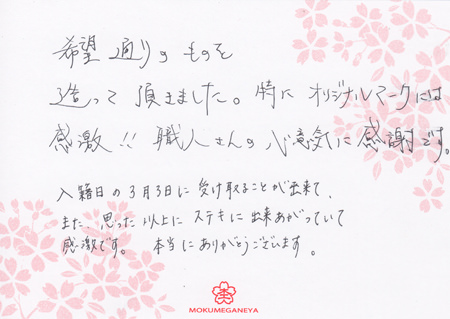 希望通りのものを
造って頂きました。特にオリジナルマークには
感激!!職人さんの心意気に感謝です。
入籍日の3月3日に受け取ることが出来て、
また、思った以上にステキに出来あがっていて
感激です。本当にありがとうございます。
MOKUMEGANEYA